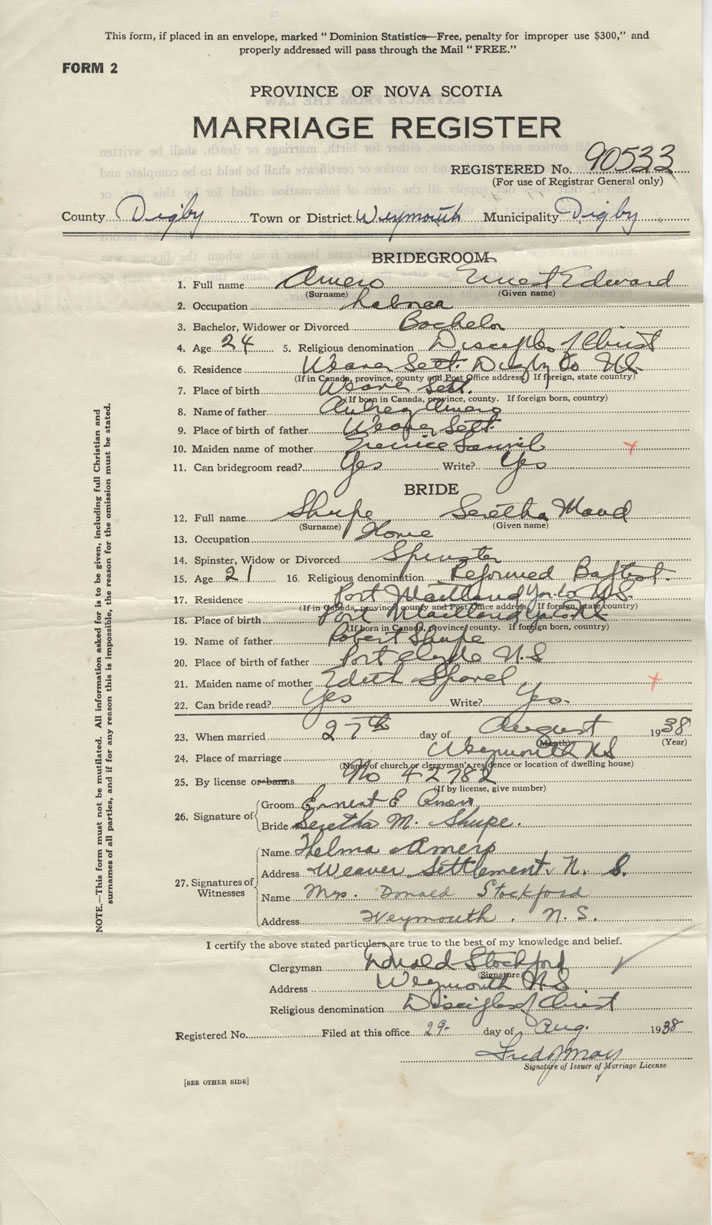 This form, if placed in an envelope, marked "Dominion Statistics—Free, penalty for improper use $300," and
properly addressed will pass through the Mail "FREE."
FORM 2
PROVINCE OF NOVA SCOTIA
MARRIAGE REGISTER
REGISTERED No. 90533
(For use of Registrar General only)
County Digby Town or District Weymouth Municipality Digby
BRIDEGROOM
1. Full name Amero Ernest Edward
(Surname) (Given name)
2. Occupation Laborer
3. Bachelor, Widower or Divorced Bachelor
4. Age 24 5. Religious denomination Disciples of Christ
6. Residence Weaver Sett. Digby Co NS
(If in Canada, province, county and Post Office address) If foreign, state country)
7. Place of birth Weaver Sett.
(If born in Canada, province, county. If foreign born, country)
8. Name of father Aubrey Amero
9. Place of birth of father Weaver Sett.
10. Maiden name of mother
11. Can bridegroom read? Yes Write? Yes
BRIDE
12. Full name Shupe Seretha Maud
(Surname) (Given name)
13. Occupation Home
14. Spinster, Widow or Divorced Spinster
15. Age 21 16. Religious denomination Reformed Baptist
17. Residence Port Maitland Yar Co N.S.
(If in Canada, province, county and Post Office address) If foreign, state country)
18. Place of birth Port Maitland
(If born in Canada, province, county. If foreign born, country)
19. Name of father Robert Shupe
20. Place of birth of father Port Clyde N.S
21. Maiden name of mother Edith
22. Can bride read? Yes Write? Yes.
23. When married 27th day of August 1938
(Month) (Year)
24. Place of marriage Weymouth NS
(Name of church or clergyman's residence or location of dwelling house)
25. By license or banns No 42782
(If by license, give number)
26. Signature of
Groom Ernest E
Bride Seretha M. Shupe.
27. Signatures of Witnesses
Name Thelma Amero
Address Weaver Settlement. N. S.
Name Mrs. Donald Stockford
Address Weymouth. N.S.
I certify the above stated particulars are true to the best of my knowledge and belief.
Clergyman Donald Stockford
(Signature)
Address Weymouth NS
Religious denomination Disciples of Christ
Registered No. Filed at this office 29- day of Aug. 1938
Signature of Issuer of Marriage License
[SEE OTHER SIDE]
NOTE.—This form must not be mutilated. All information asked for is to be given, including full Christian and
surnames of all parties, and if for any reason this is impossible, the reason for the omission must be stated.